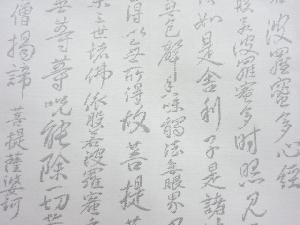 波羅蜜多心經
般若波羅蜜多時照見
如是舍利子是諸
無色聲香味觸法無眼界
得以無所得故菩提
三世諸佛依般若波羅蜜多
無等等呪能除一切苦
僧揭諦 菩提薩婆訶